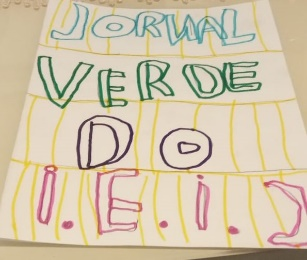 JORNAL
VERDE
DO
I.E.I.